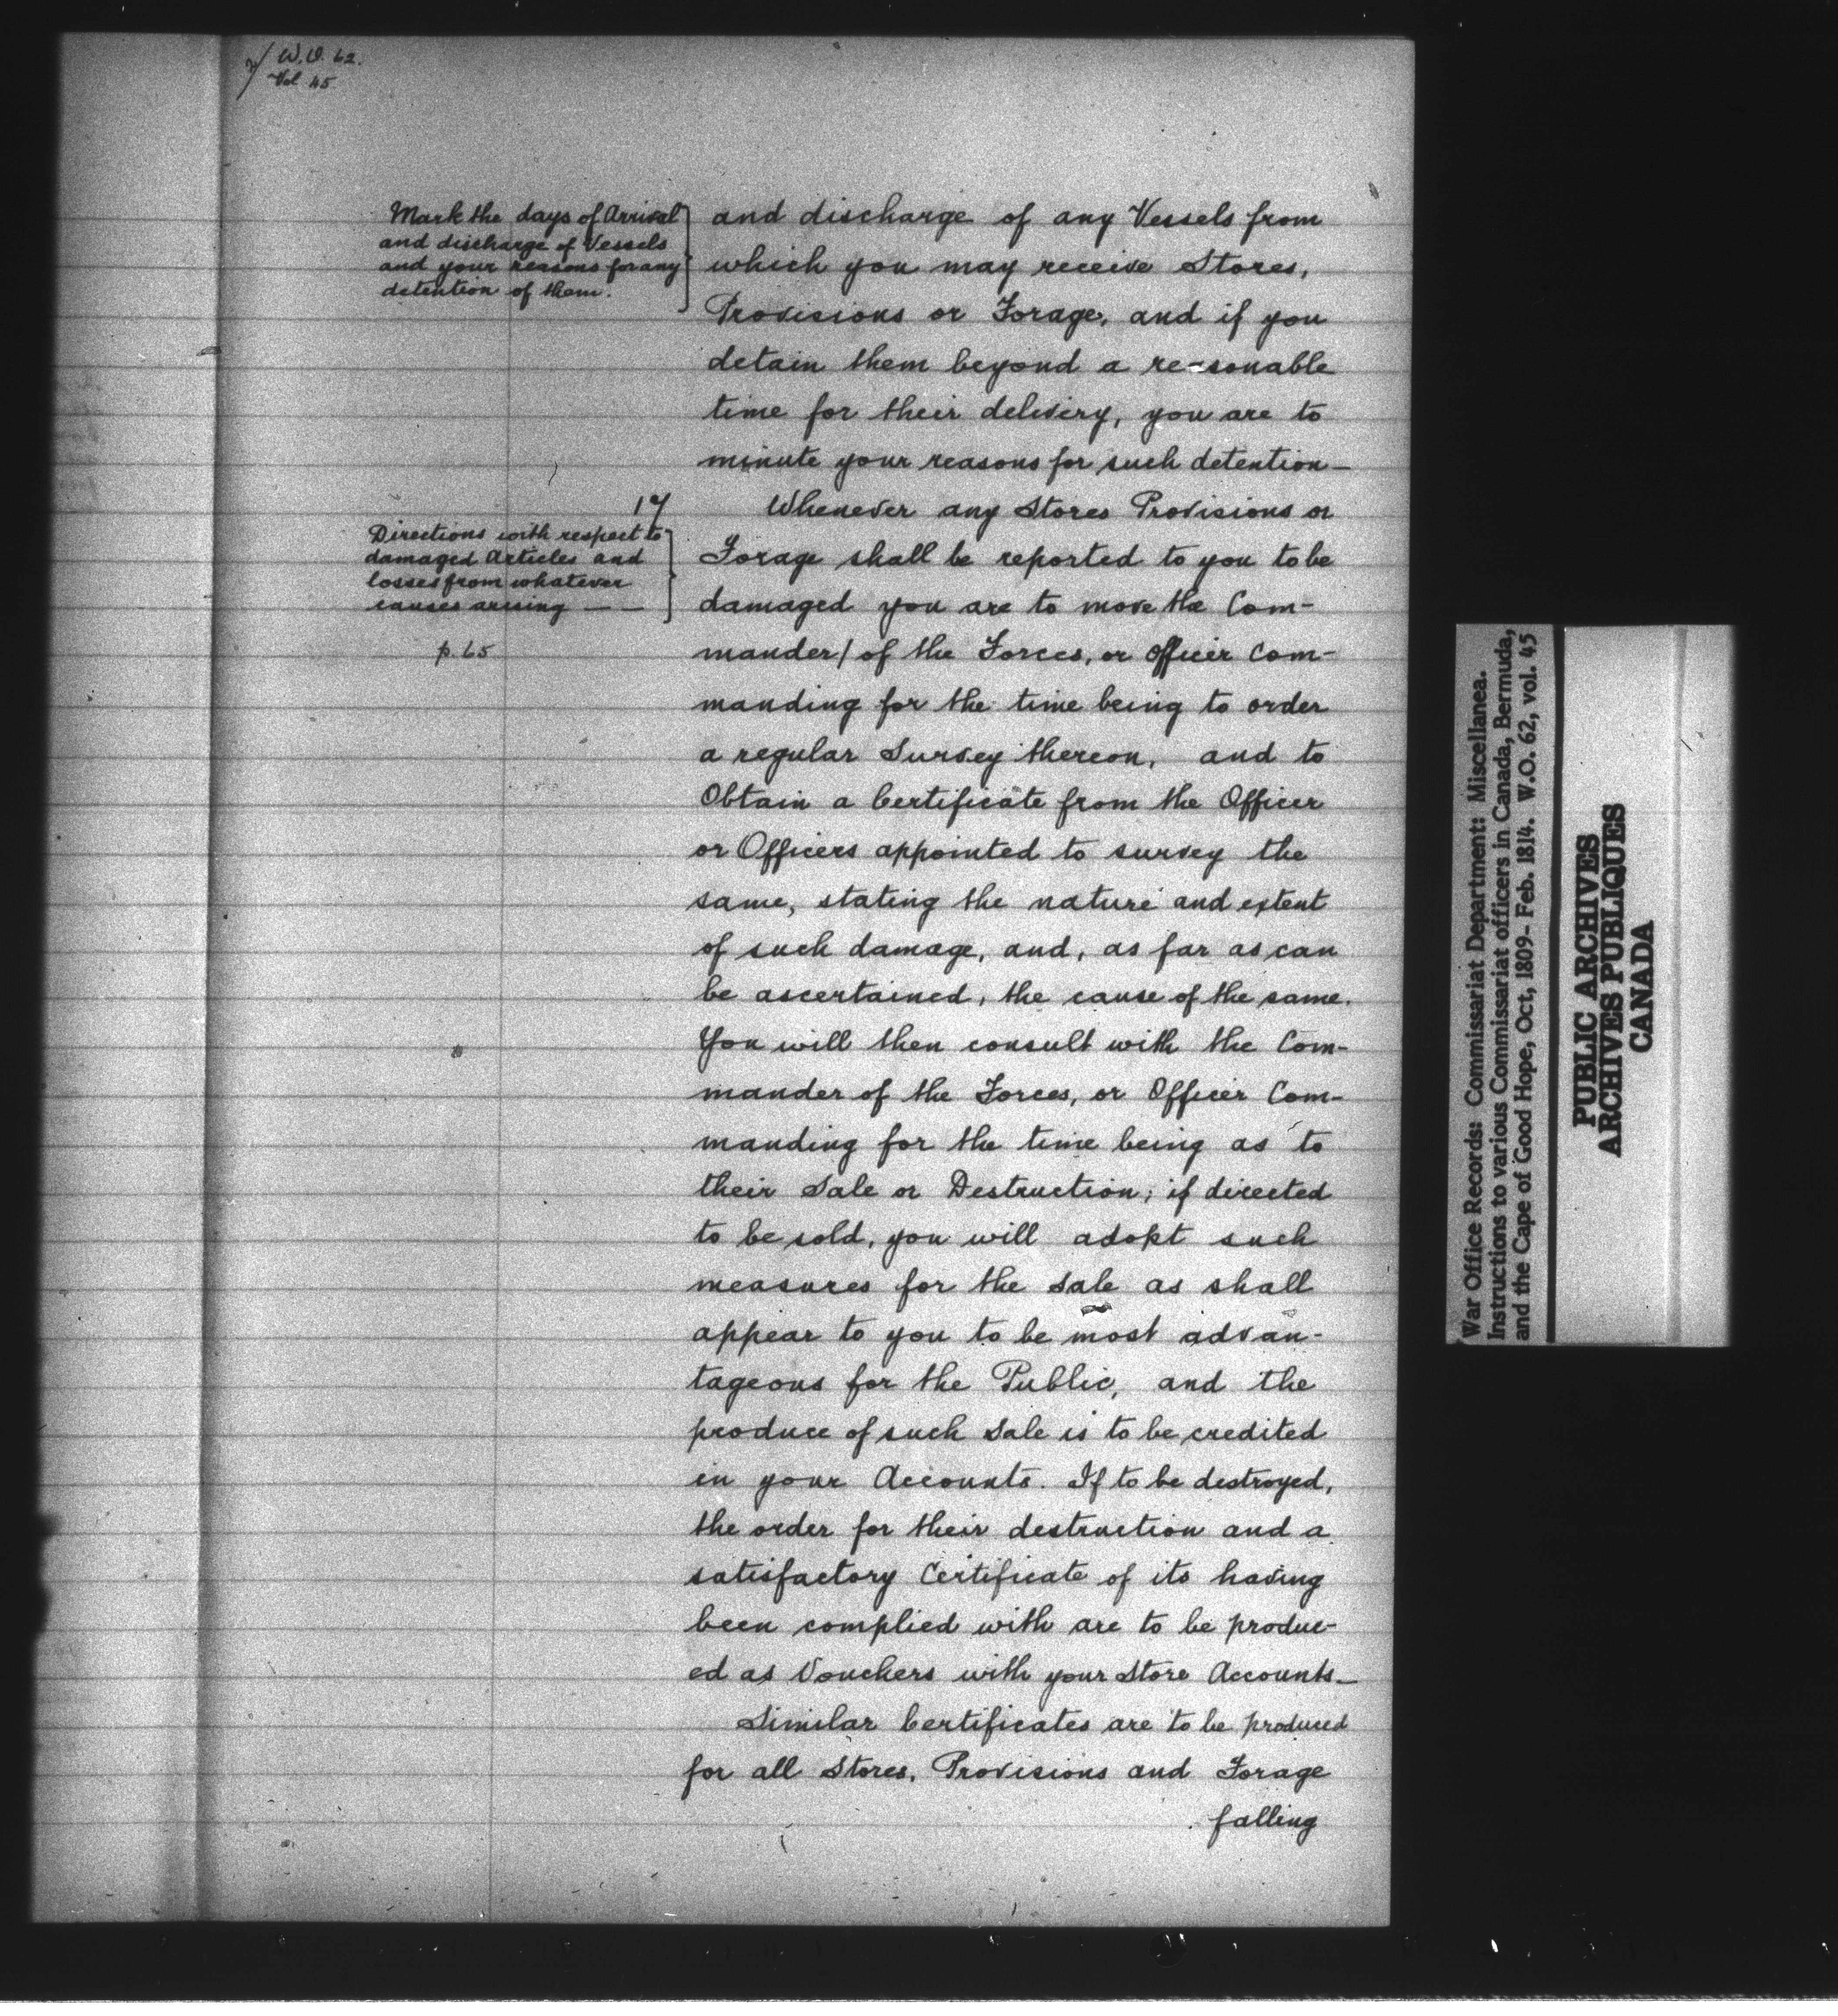 W.O. 62.
Vol 45.
Mark the days of Arrival
and discharge of Vessels
and your reasons for any
detention of them.
and discharge of any Vessels from
which you may receive Stores,
Provisions or Forage, and if you
detain them beyond a reasonable
time for their delivery, you are to
minute your reasons for such detention —
17
Directions with respect to
damaged Articles and
losses from whatever
causes arising — —
p. 65
Whenever any Stores Provisions or
Forage shall be reported to you to be
damaged you are to move the Com-
mander / of the Forces, or Officer Com-
manding for the time being to order
a regular Survey thereon, and to
Obtain a Certificate from the Officer
or Officers appointed to survey the
same, stating the nature and extent
of such damage, and, as far as can
be ascertained, the cause of the same.
You will then consult with the Com-
mander of the Forces, or Officer Com-
manding for the time being as to
their Sale or Destruction; if directed
to be sold, you will adopt such
measures for the Sale as shall
appear to you to be most advan-
tageous for the Public, and the
produce of such Sale is to be credited
in your Accounts. If to be destroyed,
the order for their destruction and a
satisfactory Certificate of its having
been complied with are to be produc-
ed as Vouchers with your Store Accounts —
Similar Certificates are to be produced
for all Stores, Provisions and Forage
falling
War Office Records: Commissariat Department: Miscellanea.
Instructions to various Commissariat officers in Canada, Bermuda,
and the Cape of Good Hope, Oct, 1809- Feb. 1814. W.O. 62, vol. 45
PUBLIC ARCHIVES
ARCHIVES PUBLIQUES
CANADA